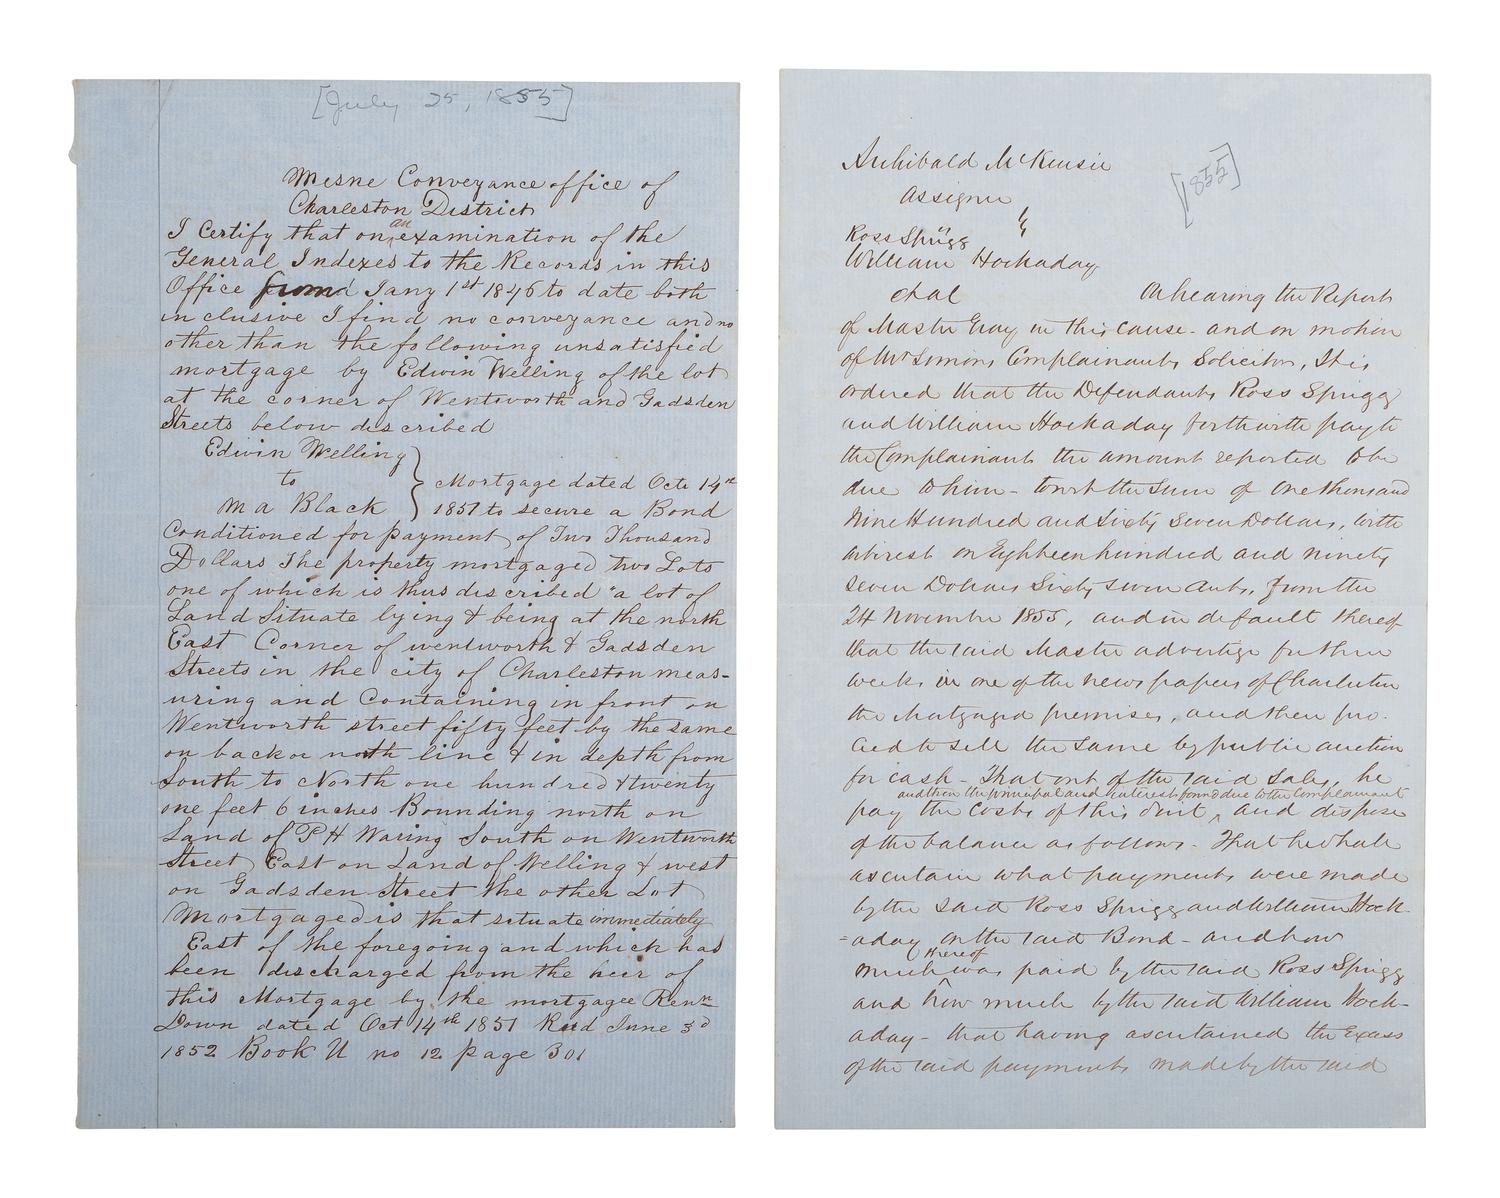 [July 25, 1855]
Mesne Conveyance office of
Charleston District
I Certify that on an examination of the
General Indexes to the Records in this
Office from Jany 1st 1846 to date both
inclusive I find no conveyance and no
other than the following unsatisfied
mortgage by Edwin Welling of the lot
at the corner of Wentworth and Gadsden
Streets below described
Edwin Welling
to
M A Black
Mortgage dated Octr 14th
1851 to secure a Bond
Conditioned for payment of Two Thousand
Dollars The property mortgaged two Lots
one of which is thus described "a lot of
Land Situate lying & being at the north
East Corner of wentworth & Gadsden
Streets in the city of Charleston meas-
uring and Containing in front on
Wentworth street fifty feet by the same
on back or north line & in depth from
South to North one hundred & twenty
one feet 6 inches Bounding north on
Land of P H Waring South on Wentworth
Street East on Land of Welling & west
on Gadsden Street the other Lot
Mortgaged is that situate immediately
East of the foregoing and which has
been discharged from the lien of
this Mortgage by the mortgagee
Down dated Oct 14th 1851 Recd June 3d
1852 Book U no 12 page 301
[1855]
Archibald McKensie
Assignee
Ross Sprigg
William Hockaday
et al
On hearing the Report
of Master Gray in this cause - and on motion
of Mr Simons Complainants Solicitor, It is
ordered that the Defendants Ross Sprigg
and William Hockaday forthwith pay to
the Complainant the amount reported to be
due to him - to wit the Sum of One thousand
Nine Hundred and Sixty Seven Dollars, with
interest on Eighteen hundred and ninety
seven Dollars Sixty seven cents, from the
24 November 1855, and in default thereof
that the said Master advertize for three
weeks in one of the newspapers of Charleston
the Mortgaged premises, and then pro-
ceed to sell the same by public auction
for cash - That out of the said Sales, he
and then the principal and interest found due to the Complainant
pay the costs of this suit, and dispose
of the balance as follows - That he shall
ascertain what payments were made
by the said Ross Sprigg and William Hock-
=aday on the said Bond - and how
thereof
much was paid by the said Ross Sprigg
and how much by the said William Hock-
aday - that having ascertained the Excess
of the said payments made by the said